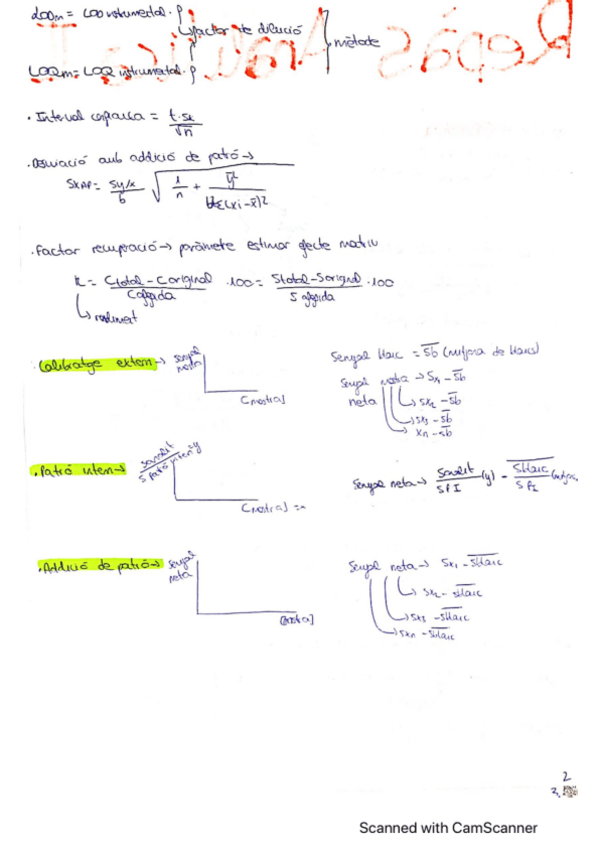 LODm = LOD instrumental · f
↳ factor de dilució
mètode
LOQm = LOQ instrumental · f
· Interval confiança = t·sx / √n
· Desviació amb addició de patró →
SxAP = Sy/x / b √ 1/n + ȳ² / b²Σ(xi - x̄)²
· Factor recuperació → paràmetre estimar efecte matriu
R = Ctotal - Coriginal / Cafegida · 100 = Stotal - Soriginal / S afegida · 100
↳ rendiment
· Calibratge extern → senyal neta
C mostra]
Senyal blanc = S̄b (mitjana de blancs)
Senyal neta → Sx₁ - S̄b
neta
↳ Sx₂ - S̄b
↳ Sx₃ - S̄b
→ xn - S̄b
· Patró intern →
S patró intern = y
C mostra] = x
Senyal neta → Sanalit / S P I (y) - S̄blanc / S PI (mitjana)
· Addició de patró → senyal neta
[mostra]
Senyal neta → Sx₁ - S̄blanc
↳ Sx₂ - S̄blanc
↳ Sx₃ - S̄blanc
→ Sxn - S̄blanc
2
Scanned with CamScanner